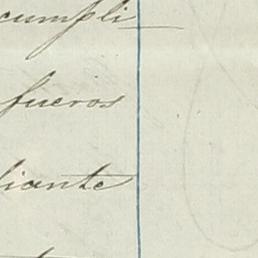 cumpli
fueros
diante